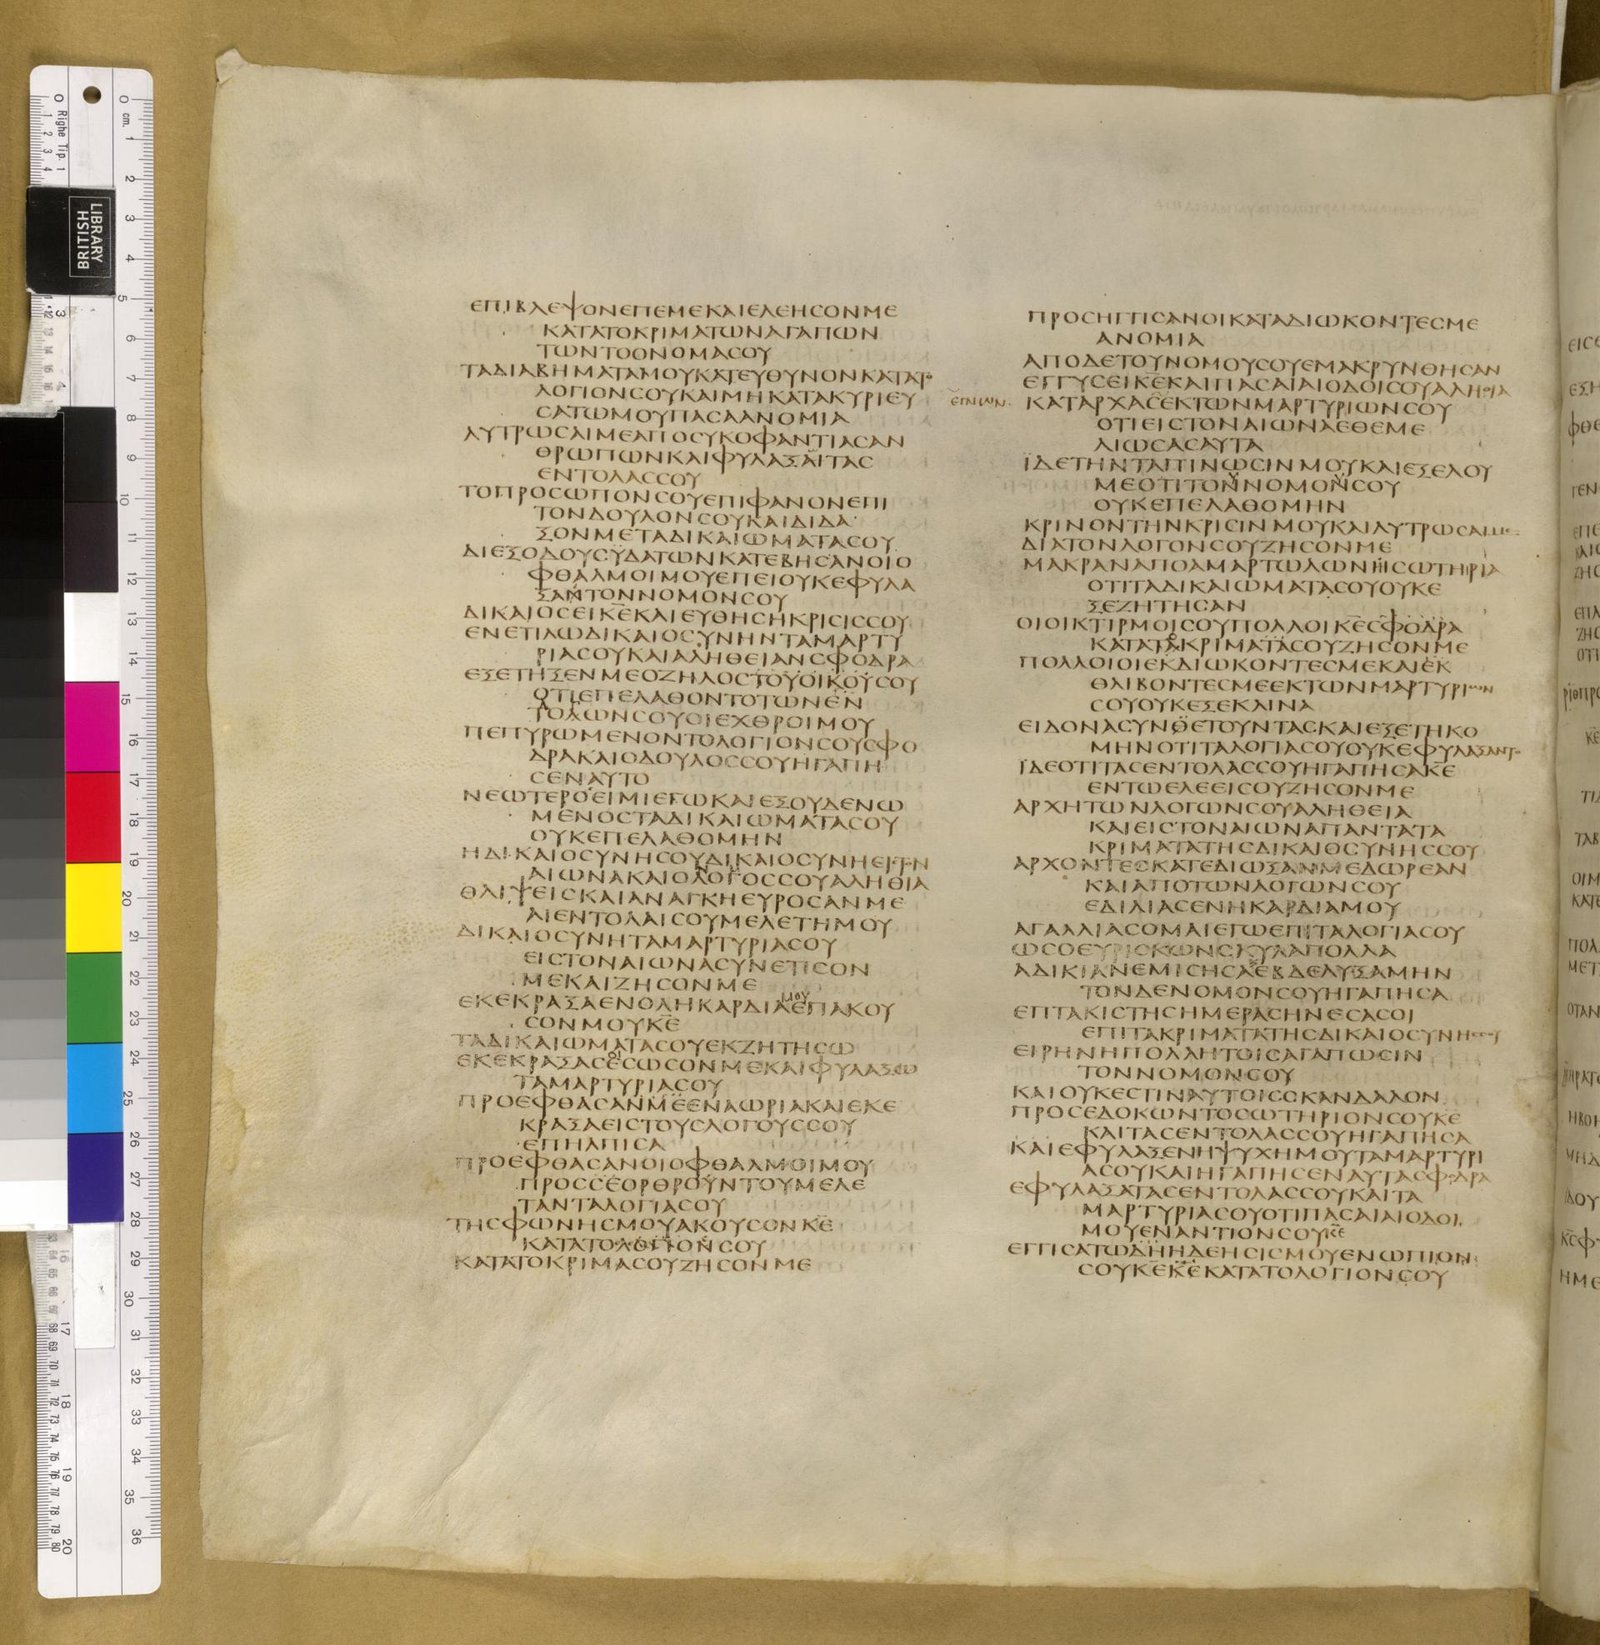 ΕΠΙΒΛΕΨΟΝΕΠΕΜΕΚΑΙΕΛΕΗϹΟΝΜΕ
ΚΑΤΑΤΟΚΡΙΜΑΤΩΝΑΓΑΠΩΝ
ΤΩΝΤΟΟΝΟΜΑϹΟΥ
ΤΑΔΙΑΒΗΜΑΤΑΜΟΥΚΑΤΕΥΘΥΝΟΝΚΑΤΑΤ
ΛΟΓΙΟΝϹΟΥΚΑΙΜΗΚΑΤΑΚΥΡΙΕΥ
ϹΑΤΩΜΟΥΠΑϹΑΑΝΟΜΙΑ
ΛΥΤΡΩϹΑΙΜΕΑΠΟϹΥΚΟΦΑΝΤΙΑϹΑΝ
ΘΡΩΠΩΝΚΑΙΦΥΛΑΞΑΙΤΑϹ
ΕΝΤΟΛΑϹϹΟΥ
ΤΟΠΡΟϹΩΠΟΝϹΟΥΕΠΙΦΑΝΟΝΕΠΙ
ΤΟΝΔΟΥΛΟΝϹΟΥΚΑΙΔΙΔΑ
ΞΟΝΜΕΤΑΔΙΚΑΙΩΜΑΤΑϹΟΥ
ΔΙΕΞΟΔΟΥϹΥΔΑΤΩΝΚΑΤΕΒΗϹΑΝΟΙΟ
ΦΘΑΛΜΟΙΜΟΥΕΠΕΙΟΥΚΕΦΥΛΑ
ΞΑΝΤΟΝΝΟΜΟΝϹΟΥ
ΔΙΚΑΙΟϹΕΙΚΕΚΑΙΕΥΘΗϹΗΚΡΙϹΙϹϹΟΥ
ΕΝΕΤΙΛΩΔΙΚΑΙΟϹΥΝΗΝΤΑΜΑΡΤΥ
ΡΙΑϹΟΥΚΑΙΑΛΗΘΕΙΑΝϹΦΟΔΡΑ
ΕΞΕΤΗΞΕΝΜΕΟΖΗΛΟϹΤΟΥΟΙΚΟΥϹΟΥ
ΟΤΙΕΠΕΛΑΘΟΝΤΟΤΩΝΕΝ
ΤΟΛΩΝϹΟΥΟΙΕΧΘΡΟΙΜΟΥ
ΠΕΠΥΡΩΜΕΝΟΝΤΟΛΟΓΙΟΝϹΟΥϹΦΟ
ΔΡΑΚΑΙΟΔΟΥΛΟϹϹΟΥΗΓΑΠΗ
ϹΕΝΑΥΤΟ
ΝΕΩΤΕΡΟΕΙΜΙΕΓΩΚΑΙΕΞΟΥΔΕΝΩ
ΜΕΝΟϹΤΑΔΙΚΑΙΩΜΑΤΑϹΟΥ
ΟΥΚΕΠΕΛΑΘΟΜΗΝ
ΗΔΙΚΑΙΟϹΥΝΗϹΟΥΔΙΚΑΙΟϹΥΝΗΕΙϹΤΝ
ΑΙΩΝΑΚΑΙΟΛΟΓΟϹϹΟΥΑΛΗΘΙΑ
ΘΛΙΨΕΙϹΚΑΙΑΝΑΓΚΗΕΥΡΟϹΑΝΜΕ
ΑΙΕΝΤΟΛΑΙϹΟΥΜΕΛΕΤΗΜΟΥ
ΔΙΚΑΙΟϹΥΝΗΤΑΜΑΡΤΥΡΙΑϹΟΥ
ΕΙϹΤΟΝΑΙΩΝΑϹΥΝΕΤΙϹΟΝ
ΜΕΚΑΙΖΗϹΟΝΜΕ
ΕΚΕΚΡΑΞΑΕΝΟΛΗΚΑΡΔΙΑΜΟΥΕΠΑΚΟΥ
ϹΟΝΜΟΥΚΕ
ΤΑΔΙΚΑΙΩΜΑΤΑϹΟΥΕΚΖΗΤΗϹΩ
ΕΚΕΚΡΑΞΑϹΕϹΩϹΟΝΜΕΚΑΙΦΥΛΑΞΩ
ΤΑΜΑΡΤΥΡΙΑϹΟΥ
ΠΡΟΕΦΘΑϹΑΝΜΕΕΝΑΩΡΙΑΚΑΙΕΚΕ
ΚΡΑΞΑΕΙϹΤΟΥϹΛΟΓΟΥϹϹΟΥ
ΕΠΗΛΠΙϹΑ
ΠΡΟΕΦΘΑϹΑΝΟΙΟΦΘΑΛΜΟΙΜΟΥ
ΠΡΟϹϹΕΟΡΘΡΟΥΝΤΟΥΜΕΛΕ
ΤΑΝΤΑΛΟΓΙΑϹΟΥ
ΤΗϹΦΩΝΗϹΜΟΥΑΚΟΥϹΟΝΚΕ
ΚΑΤΑΤΟΛΟΓΙΟΝϹΟΥ
ΚΑΤΑΤΟΚΡΙΜΑϹΟΥΖΗϹΟΝΜΕ
ΠΡΟϹΗΓΓΙϹΑΝΟΙΚΑΤΑΔΙΩΚΟΝΤΕϹΜΕ
ΑΝΟΜΙΑ
ΑΠΟΔΕΤΟΥΝΟΜΟΥϹΟΥΕΜΑΚΡΥΝΘΗϹΑΝ
ΕΓΓΥϹΕΙΚΕΚΑΙΠΑϹΑΙΑΙΟΔΟΙϹΟΥΑΛΗΘΙΑ
ΕΓΝΩΝ ΚΑΤΑΡΧΑϹΕΚΤΩΝΜΑΡΤΥΡΙΩΝϹΟΥ
ΟΤΙΕΙϹΤΟΝΑΙΩΝΑΕΘΕΜΕ
ΛΙΩϹΑϹΑΥΤΑ
ΪΔΕΤΗΝΤΑΠΙΝΩϹΙΝΜΟΥΚΑΙΕΞΕΛΟΥ
ΜΕΟΤΙΤΟΝΝΟΜΟΝϹΟΥ
ΟΥΚΕΠΕΛΑΘΟΜΗΝ
ΚΡΙΝΟΝΤΗΝΚΡΙϹΙΝΜΟΥΚΑΙΛΥΤΡΩϹΑΙΜΕ
ΔΙΑΤΟΝΛΟΓΟΝϹΟΥΖΗϹΟΝΜΕ
ΜΑΚΡΑΝΑΠΟΑΜΑΡΤΩΛΩΝΗϹΩΤΗΡΙΑ
ΟΤΙΤΑΔΙΚΑΙΩΜΑΤΑϹΟΥΟΥΚΕ
ΞΕΖΗΤΗϹΑΝ
ΟΙΟΙΚΤΙΡΜΟΙϹΟΥΠΟΛΛΟΙΚΕϹΦΟΔΡΑ
ΚΑΤΑΤΑΚΡΙΜΑΤΑϹΟΥΖΗϹΟΝΜΕ
ΠΟΛΛΟΙΟΙΕΚΔΙΩΚΟΝΤΕϹΜΕΚΑΙΕΚ
ΘΛΙΒΟΝΤΕϹΜΕΕΚΤΩΝΜΑΡΤΥΡΙΩΝ
ϹΟΥΟΥΚΕΞΕΚΛΙΝΑ
ΕΙΔΟΝΑϹΥΝΘΕΤΟΥΝΤΑϹΚΑΙΕΞΕΤΗΚΟ
ΜΗΝΟΤΙΤΑΛΟΓΙΑϹΟΥΟΥΚΕΦΥΛΑΞΑΝΤΟ
ΪΔΕΟΤΙΤΑϹΕΝΤΟΛΑϹϹΟΥΗΓΑΠΗϹΑΚΕ
ΕΝΤΩΕΛΕΕΙϹΟΥΖΗϹΟΝΜΕ
ΑΡΧΗΤΩΝΛΟΓΩΝϹΟΥΑΛΗΘΕΙΑ
ΚΑΙΕΙϹΤΟΝΑΙΩΝΑΠΑΝΤΑΤΑ
ΚΡΙΜΑΤΑΤΗϹΔΙΚΑΙΟϹΥΝΗϹϹΟΥ
ΑΡΧΟΝΤΕϹΚΑΤΕΔΙΩΞΑΝΜΕΔΩΡΕΑΝ
ΚΑΙΑΠΟΤΩΝΛΟΓΩΝϹΟΥ
ΕΔΙΛΙΑϹΕΝΗΚΑΡΔΙΑΜΟΥ
ΑΓΑΛΛΙΑϹΟΜΑΙΕΓΩΕΠΙΤΑΛΟΓΙΑϹΟΥ
ΩϹΟΕΥΡΙϹΚΩΝϹΚΥΛΑΠΟΛΛΑ
ΑΔΙΚΙΑΝΕΜΙϹΗϹΑΕΒΔΕΛΥΞΑΜΗΝ
ΤΟΝΔΕΝΟΜΟΝϹΟΥΗΓΑΠΗϹΑ
ΕΠΤΑΚΙϹΤΗϹΗΜΕΡΑϹΗΝΕϹΑϹΟΙ
ΕΠΙΤΑΚΡΙΜΑΤΑΤΗϹΔΙΚΑΙΟϹΥΝΗϹϹΟΥ
ΕΙΡΗΝΗΠΟΛΛΗΤΟΙϹΑΓΑΠΩϹΙΝ
ΤΟΝΝΟΜΟΝϹΟΥ
ΚΑΙΟΥΚΕϹΤΙΝΑΥΤΟΙϹϹΚΑΝΔΑΛΟΝ
ΠΡΟϹΕΔΟΚΩΝΤΟϹΩΤΗΡΙΟΝϹΟΥΚΕ
ΚΑΙΤΑϹΕΝΤΟΛΑϹϹΟΥΗΓΑΠΗϹΑ
ΚΑΙΕΦΥΛΑΞΕΝΗΨΥΧΗΜΟΥΤΑΜΑΡΤΥΡΙ
ΑϹΟΥΚΑΙΗΓΑΠΗϹΕΝΑΥΤΑϹΦΟΔΡΑ
ΕΦΥΛΑΞΑΤΑϹΕΝΤΟΛΑϹϹΟΥΚΑΙΤΑ
ΜΑΡΤΥΡΙΑϹΟΥΟΤΙΠΑϹΑΙΑΙΟΔΟΙ
ΜΟΥΕΝΑΝΤΙΟΝϹΟΥΚΕ
ΕΓΓΙϹΑΤΩΔΗΗΔΕΗϹΙϹΜΟΥΕΝΩΠΙΟΝ
ϹΟΥΚΕΚΕΚΑΤΑΤΟΛΟΓΙΟΝϹΟΥ
BRITISH
LIBRARY